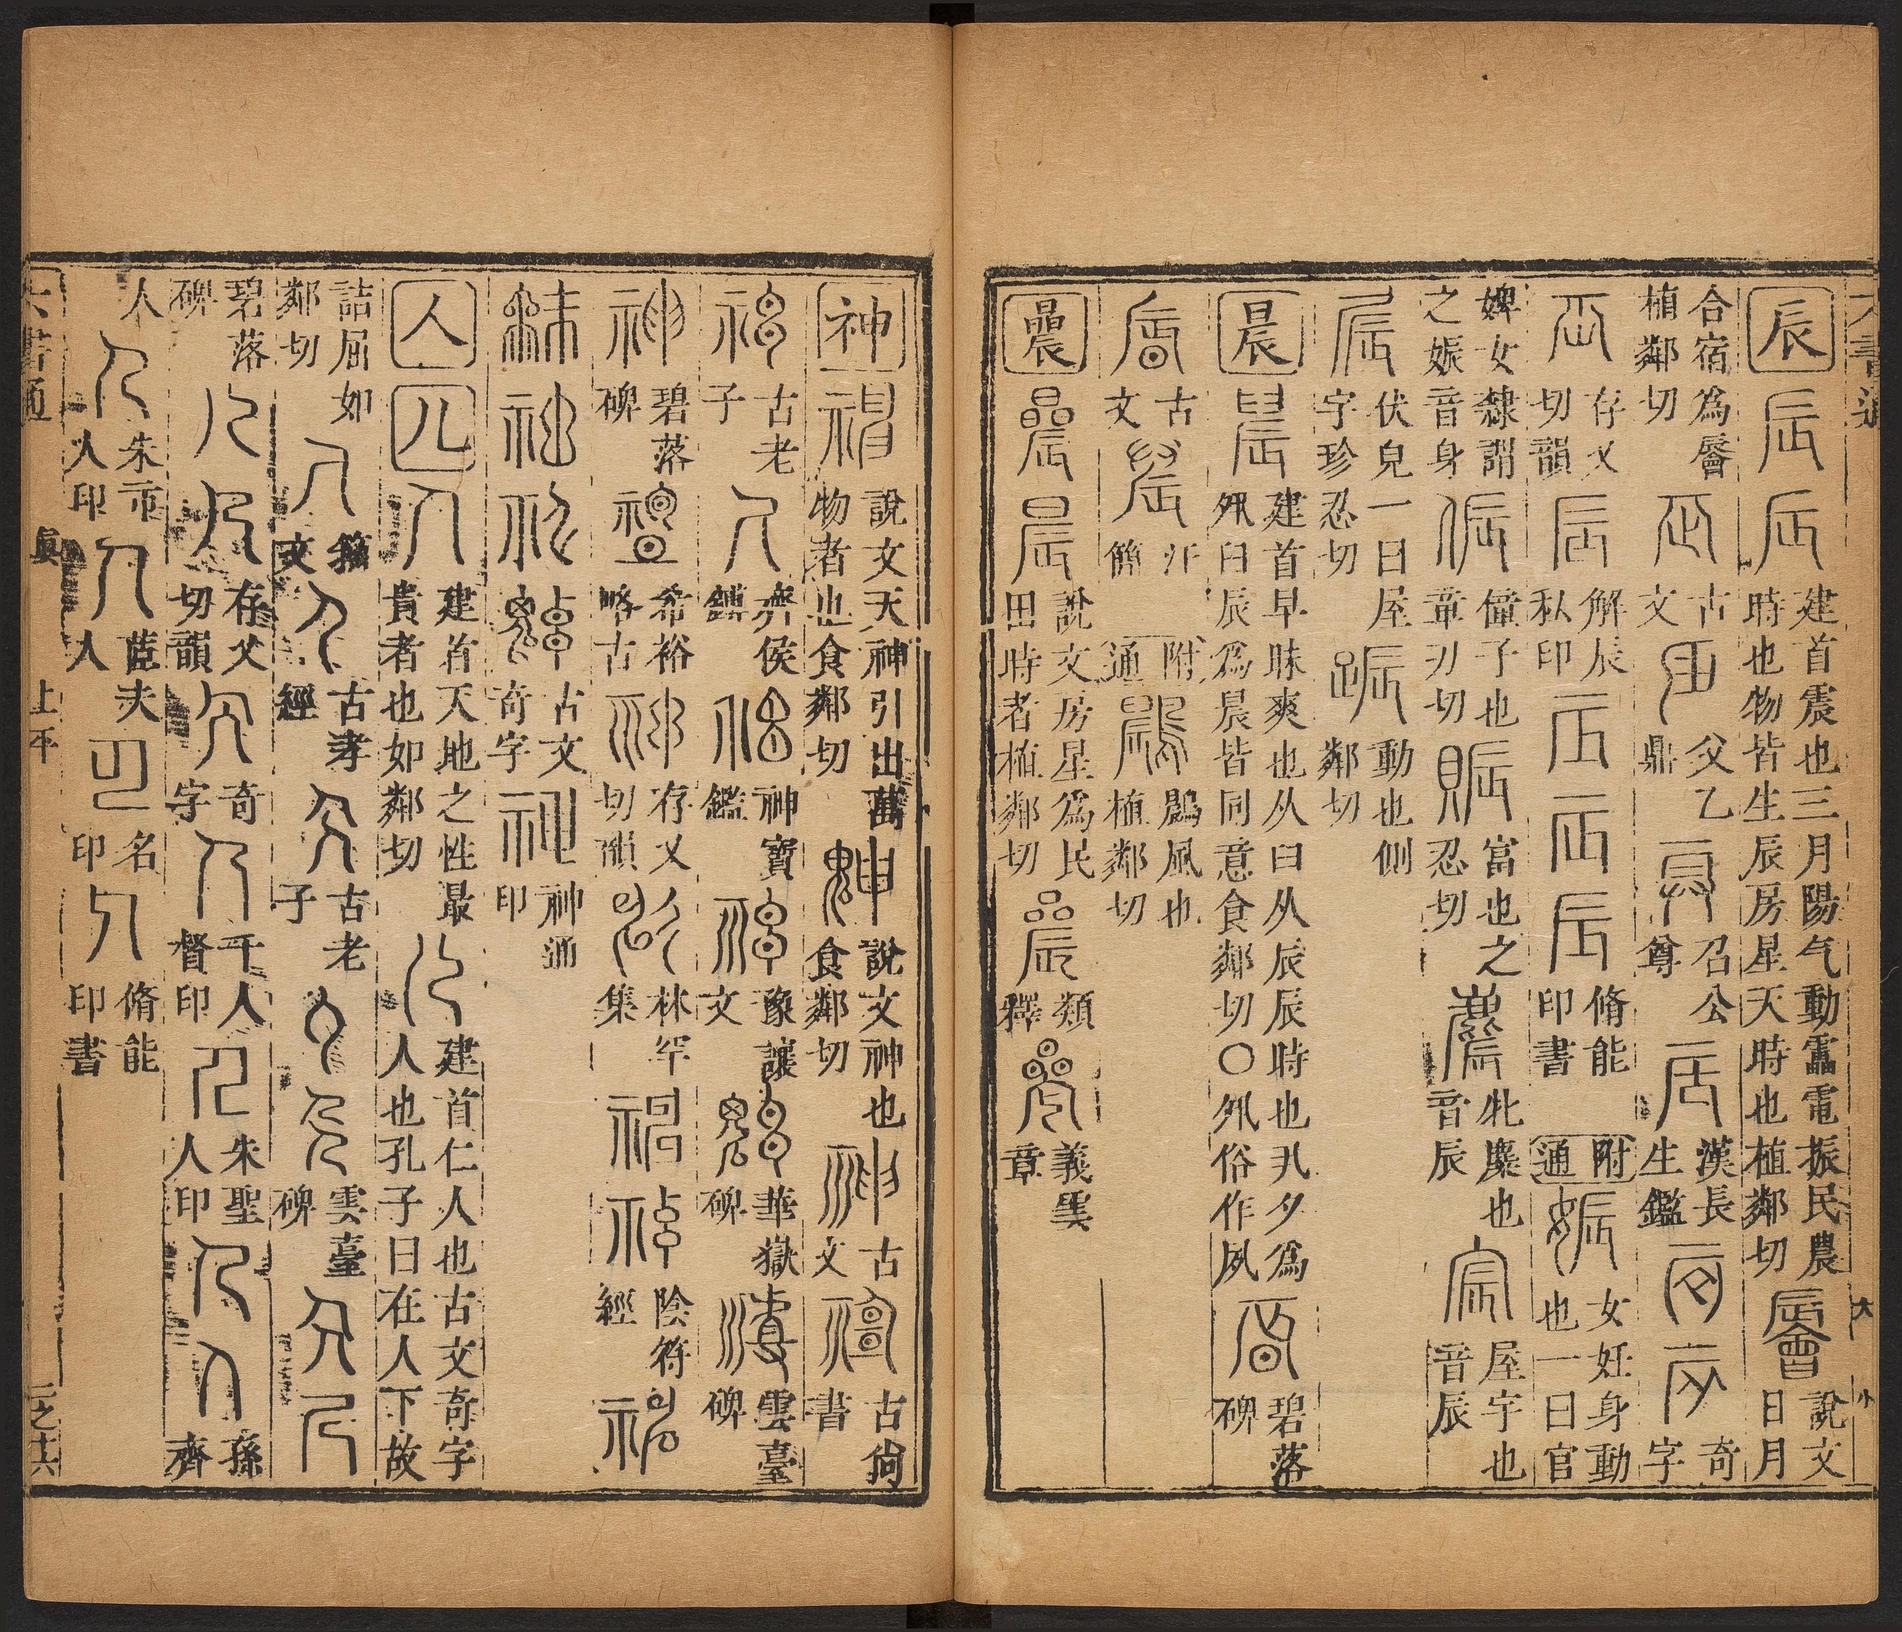 辰
建首震也三月陽气動靁電振民農
時也物皆生辰房星天時也植鄰切
說文
日月
合宿爲䢅
植鄰切
古
文
父乙
鼎
召公
尊
漢長
生鑑
奇
字
存乂
切韻
解辰
私印
脩能
印書
附
通
女妊身動
也一曰官
婢女隸謂
之娠音身
僮子也
章刃切
富也之
忍切
牝麋也
音辰
屋宇也
音辰
伏皃一曰屋
字珍忍切
動也側
鄰切
晨
建首早昧爽也从臼从辰辰時也丮夕爲
夙臼辰爲晨皆同意食鄰切〇夙俗作夙
碧落
碑
古
文
汗
簡
附
通
鷐風也
植鄰切
曟
說文房星爲民
田時者植鄰切
類
釋
義雲
章
神
說文天神引出萬
物者也食鄰切
說文神也
食鄰切
古
文
古尙
書
古老
子
齊侯
鎛
神寶
鑑
豫讓
文
華嶽
碑
雲臺
碑
碧落
碑
希裕
略古
存乂
切韻
林罕
集
陰符
經
古文
奇字
神通
印
人
建首天地之性最
貴者也如鄰切
建首仁人也古文奇字
人也孔子曰在人下故
詰屈如
鄰切
籀
文
古孝
經
古老
子
雲臺
碑
碧落
碑
存乂
切韻
奇
字
千人
督印
朱聖
人印
孫
齊
人
朱巿
人印
薩夫
人
名
印
脩能
印書
六書通
眞
上平
二之十六